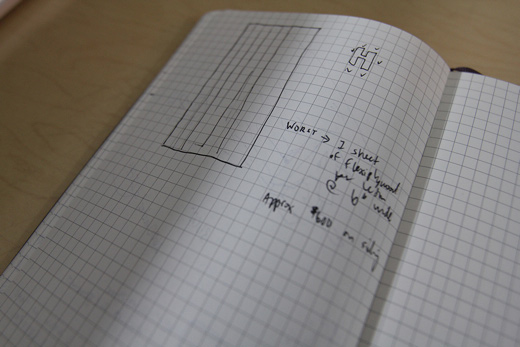 H
WORST → 1 sheet
of flexiplywood
per
@ 6" wide
Approx $600 on